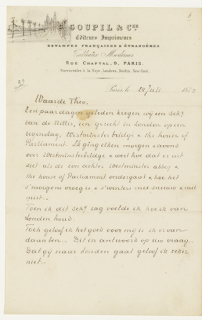 GOUPIL & Cie
Éditeurs Imprimeurs
ESTAMPES FRANÇAISES & ÉTRANGÈRES
Tableaux Modernes
RUE CHAPTAL, 9, PARIS.
Succursales à la Haye, Londres, Berlin, New-York.
Paris, le 24 Juli 187
Waarde Theo,
Een paar dagen geleden kregen wij een schij
van de Nittis, een gezicht in Londen op een
regendag, Westminster bridge & the house of
Parliament. Ik ging elken morgen & avond
over Westminster bridge & weet hoe dat er uit
ziet als de zon achter Westminster abbey &
the house of Parliament ondergaat & hoe het
's morgens vroeg is, & 's winters met sneeuw & mist
Toen ik dit schij zag voelde ik hoe ik van
Londen houd.
Toch geloof ik het goed voor mij is ik er van-
daan ben. Dit in antwoord op uw vraag.
Dat gij naar Londen gaat geloof ik zeker
niet.